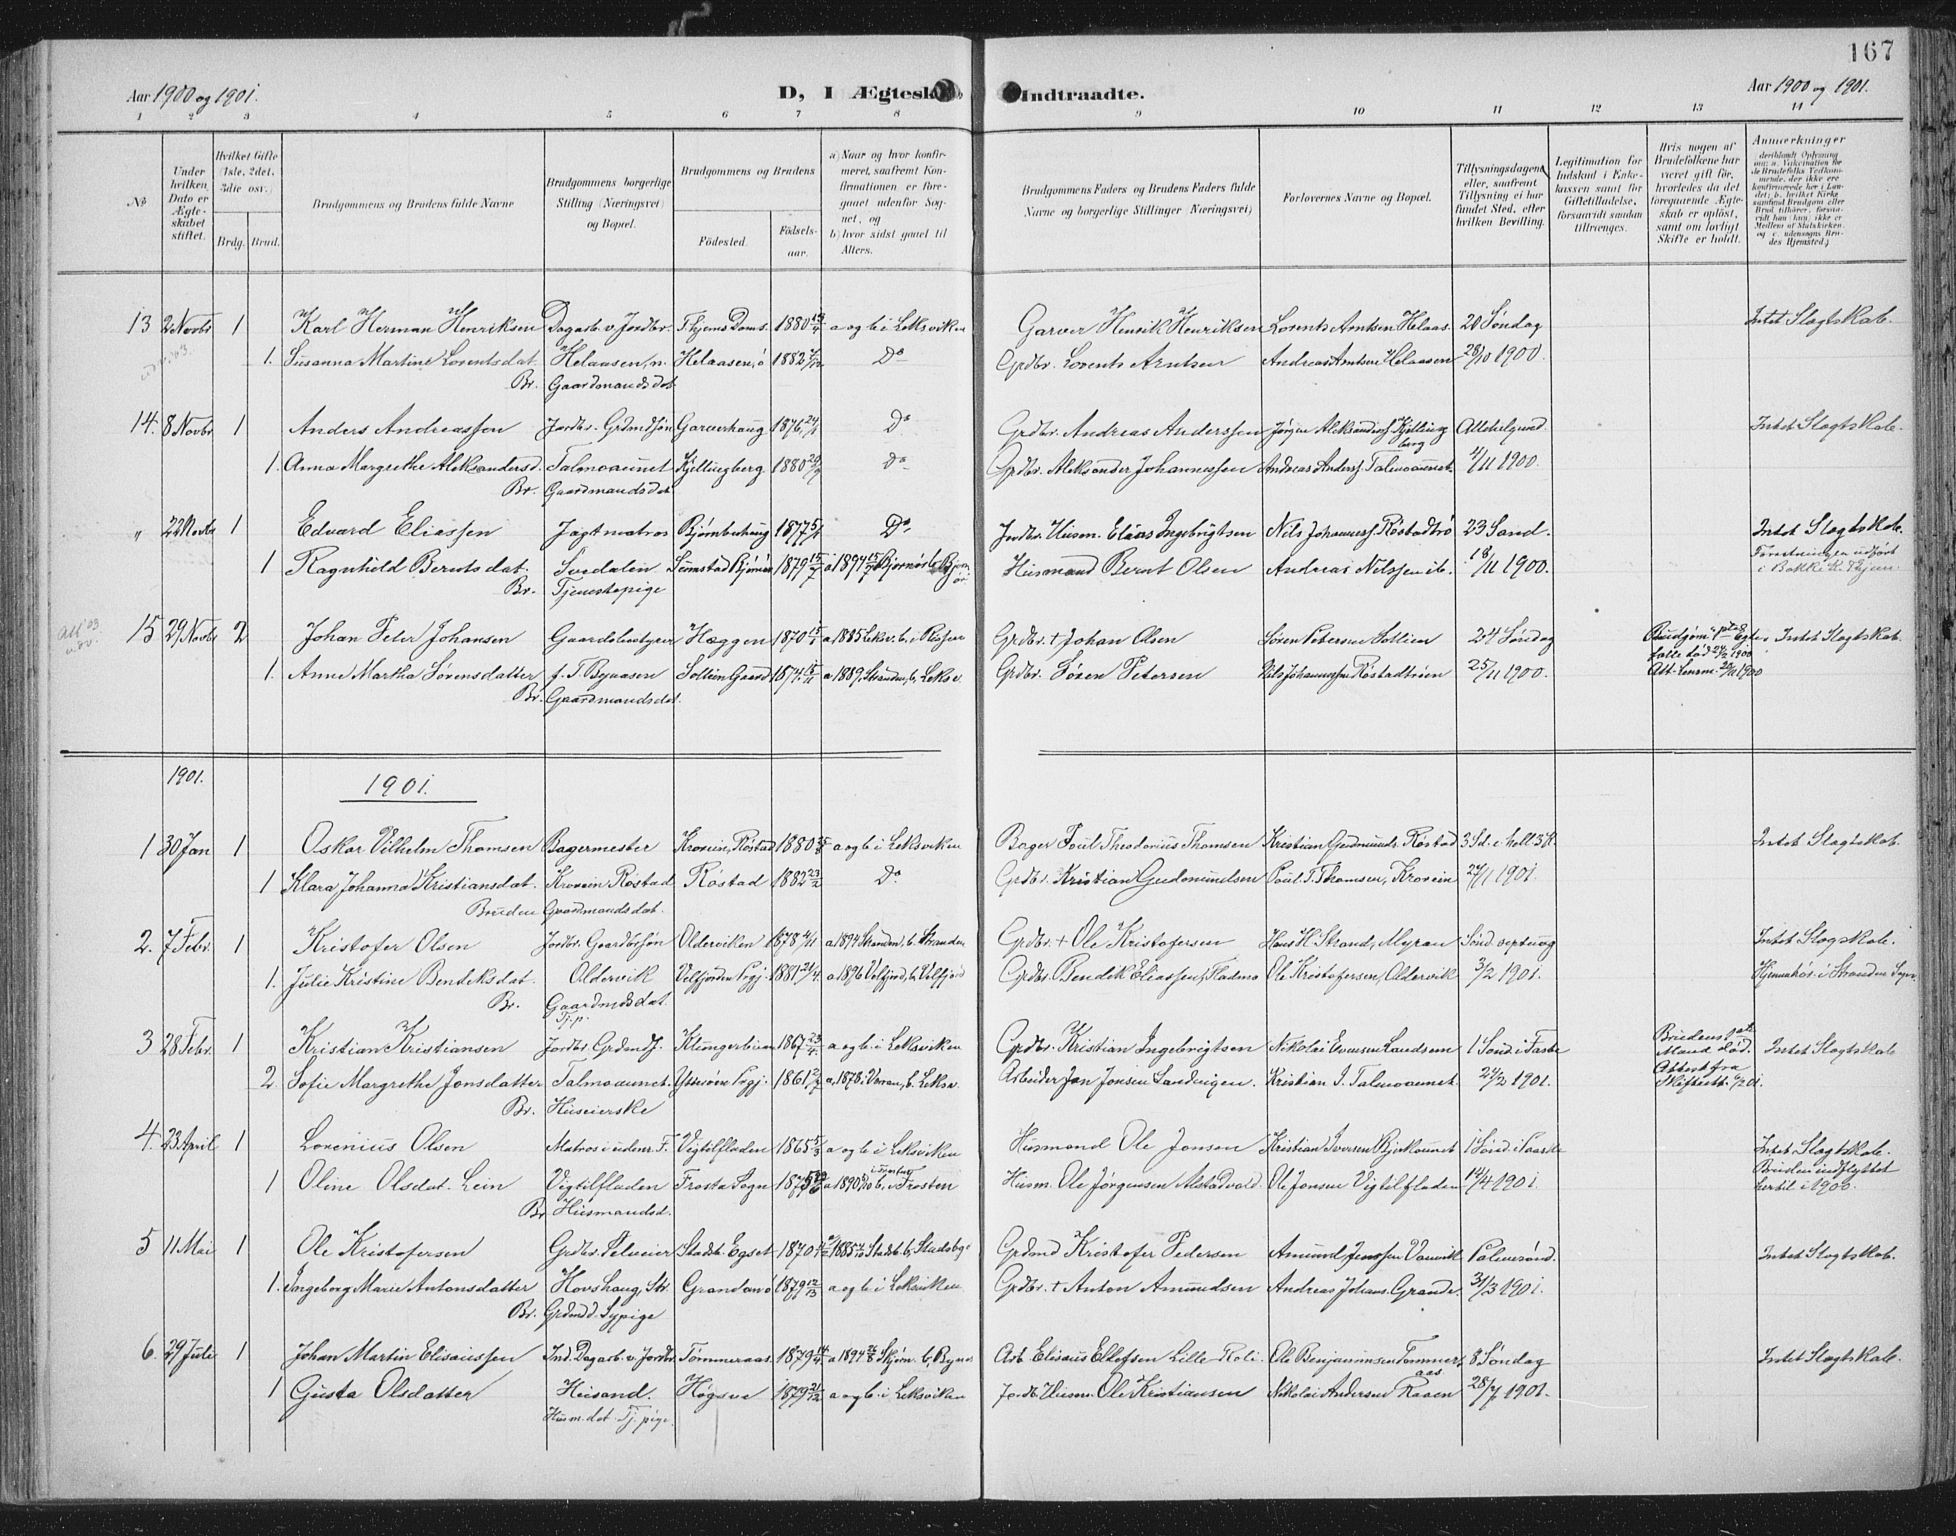 167
Aar 1900 og 1901.
D, I Ægtesk
Indtraadte.
Aar 1900 og 1901.
1 2 3 4 5 6 7 8 9 10 11 12 13 14
No
Under hvilken Dato er Ægteskabet stiftet.
Hvilket Gifte (1ste, 2det, 3die osv.)
Brdg. Brud.
Brudgommens og Brudens fulde Navne
Brudgommens borgerlige Stilling (Næringsvei) og Bopæl.
Brudgommens og Brudens
Födested. Födselsaar.
a) Naar og hvor konfirmeret, saafremt Konfirmationen er foregaaet udenfor Sognet, og
b) hvor sidst gaaet til Alters.
Brudgommens Faders og Brudens Faders fulde Navne og borgerlige Stillinger (Næringsvei)
Forlovernes Navne og Bopæl.
Tillysningsdagene, eller, saafremt Tillysning ei har fundet Sted, efter hvilken Bevilling.
Legitimation for Indskud i Enkekassen samt for Giftetilladelse, forsaavidt saadan tiltrænges.
Hvis nogen af Brudefolkene har været gift før, hvorledes da det foregaaende Ægteskab er opløst, samt om lovligt Skifte er holdt.
Anmerkninger
13 2 Novbr 1 Karl Herman Henriksen Dagarb. v. Jordbr. Thjems Doms. 1880 a og b i Leksviken Garver Henrik Henriksen Lorents Arntsen Helaas 20 Søndag Intet Slagtskab.
1. Susanna Martine Lorentsdat. Helaasen, n. Helaasen, ö 1882 Do Grdbr. Lorents Arntsen Andreas Arntsen Helaasen 28/10 1900.
Br. Gaardmandsdat
14. 8 Novbr 1 Anders Andreassen Jordbr. Grdmdsøn Garverhaug 1876 Do Grdbr. Andreas Anderssen Jørgen Aleksanders. Kjellingberg Intet Slagtskab.
1. Anna Margrethe Aleksandersd. Talmoaunet Kjellingberg 1880 Do Grdbr. Aleksander Johannessen Andreas Anders. Talmoaunet 4/11 1900.
Br. Gaardmandsdat
" 22 Novbr 1 Edvard Eliassen Jagtmatros Bjørnbehaug 1877 Do Jordbr. Husm. Elias Ingebrigtsen Nils Johanness. Røstadtrø 23 Sønd. Intet Slagtskab.
1 Ragnhild Berntsdat. Svedalen Sumstad Bjørnör 1879 Husmand Bernt Olsen Andreas Nilssen ib. 18/11 1900. Forretningen udført
Br. Tjenestepige i Bakke K.
15 29 Novbr 2 Johan Peter Johansen Gaardsbestyrer Hæggen 1870 a 1885 Leksv. b. i Rissen Grdbr. + Johan Olsen Søren Petersen Sollien 24 Søndag Intet Slagtskab.
1. Anne Martha Sørensdatter f. T. Bynaasen Sollien Gaard 1874 a 1889, Stranden, b. Leksv. Grdbr. Søren Petersen Nils Johannessen Røstadtrøen 25/11 1900.
Br. Gaardmandsdat.
1901. 1901.
1 30 Jan 1 Oskar Vilhelm Thomsen Bagermester Kroven, Røstad 1880 a og b i Leksviken Bager Poul Theodorius Thomsen Kristian Gudmunds. Røstad Intet Slagtskab.
1 Klara Johanna Kristiansdat. Kroven Røstad Røstad 1882 23/2 Do Grdbr. Kristian Gudmundsen Poul T. Thomsen, Kroven 27/1 1901.
Bruden Gaardmandsdat.
2. 7 Febr. 1 Kristofer Olsen Jordbr. Gaardbrsøn Oldervikен 1878 4/11 a 1894 Stranden, b. Stranden Grdbr. + Ole Kristofersen Hans H. Strand, Myran Intet Slagtskab.
1. Julie Kristine Bendiksdat. Oldervik Velfjorden Prgj. 1881 21/4 a 1896 Velfjord, b. Velfjord Grdbr. Bendik Eliassen, Fladmo Ole Kristofersen, Oldervik 3/2 1901. Hjemmehør. i Stranden Sogn
Br. Gaardmdsdat. Tj.p.
3 28 Febr. 1 Kristian Kristiansen Jordbr. Grdmds. Klungerbuen 1867 23/4 a og b. i Leksviken Grdbr. Kristian Ingebrigtsen Nikolai Evensen Landsem 1 Sønd. i Faste Brudens Mand død. Intet Slagtskab
2. Sofie Margrethe Jonsdatter Talmoaunet. Ytterøen Prgj. 1861 a, 1878 i Værran, b. Leksv. Arbeider Jon Jonsen Sandvigen. Kristian I. Talmoaunet. 24/2 1901. Attest fra Skifterett.
Br. Huseierske
4. 23 April 1 Lorenius Olsen Matros i udenr. F. Vigtilfladen 1865 a og b. i Leksviken Husmand Ole Jonsen Kristian Iversen Bjerkaunet 1 Sønd. i Paaske Intet Slagtskab.
1 Oline Olsdat. Lein Vigtilfladen Frosta Sogn a 1890 i Frosten b. i Frosten Husm. Ole Jørgensen Alstadvold. Ole Jonsen Vigtilfladen 14/4 1901. Bruden indflyttet hertil i 1900.
Br. Husmandsd.
5 11 Mai 1 Ole Kristofersen Grdbr. Selveier Stadsb. Egset 1870 Stadsb. b. Stadsby Grdmd Kristofer Pedersen Amund Jenssen Vanvik Palmesønd. Intet Slagtskab.
1. Ingeborg Marie Antonsdatter Hovshaug, Str. Grandemo 1879 a og b. i Leksviken Grdbr. + Anton Amundsen Andreas Johans. Grande. 31/3 1901.
Br. Grdmd d. Sypige
6. 29 Juli 1 Johan Martin Elisæussen Ind. Dagarb. v. Jordbr. Tømmeraas 1879 14/4 Arb. Elisæus Ellefsen Lille-Roli Ole Benjaminsen Tømmeraas 8 Søndag Intet Slagtskab.
1 Gusta Olsdatter Heisand. Høgsve 1879 21/12 a og b. i Leksviken Jordbr. Husm. Ole Kristiansen Nikolai Andersen Raaen 28/7 1901.
Husm. dat. Tj. pige.